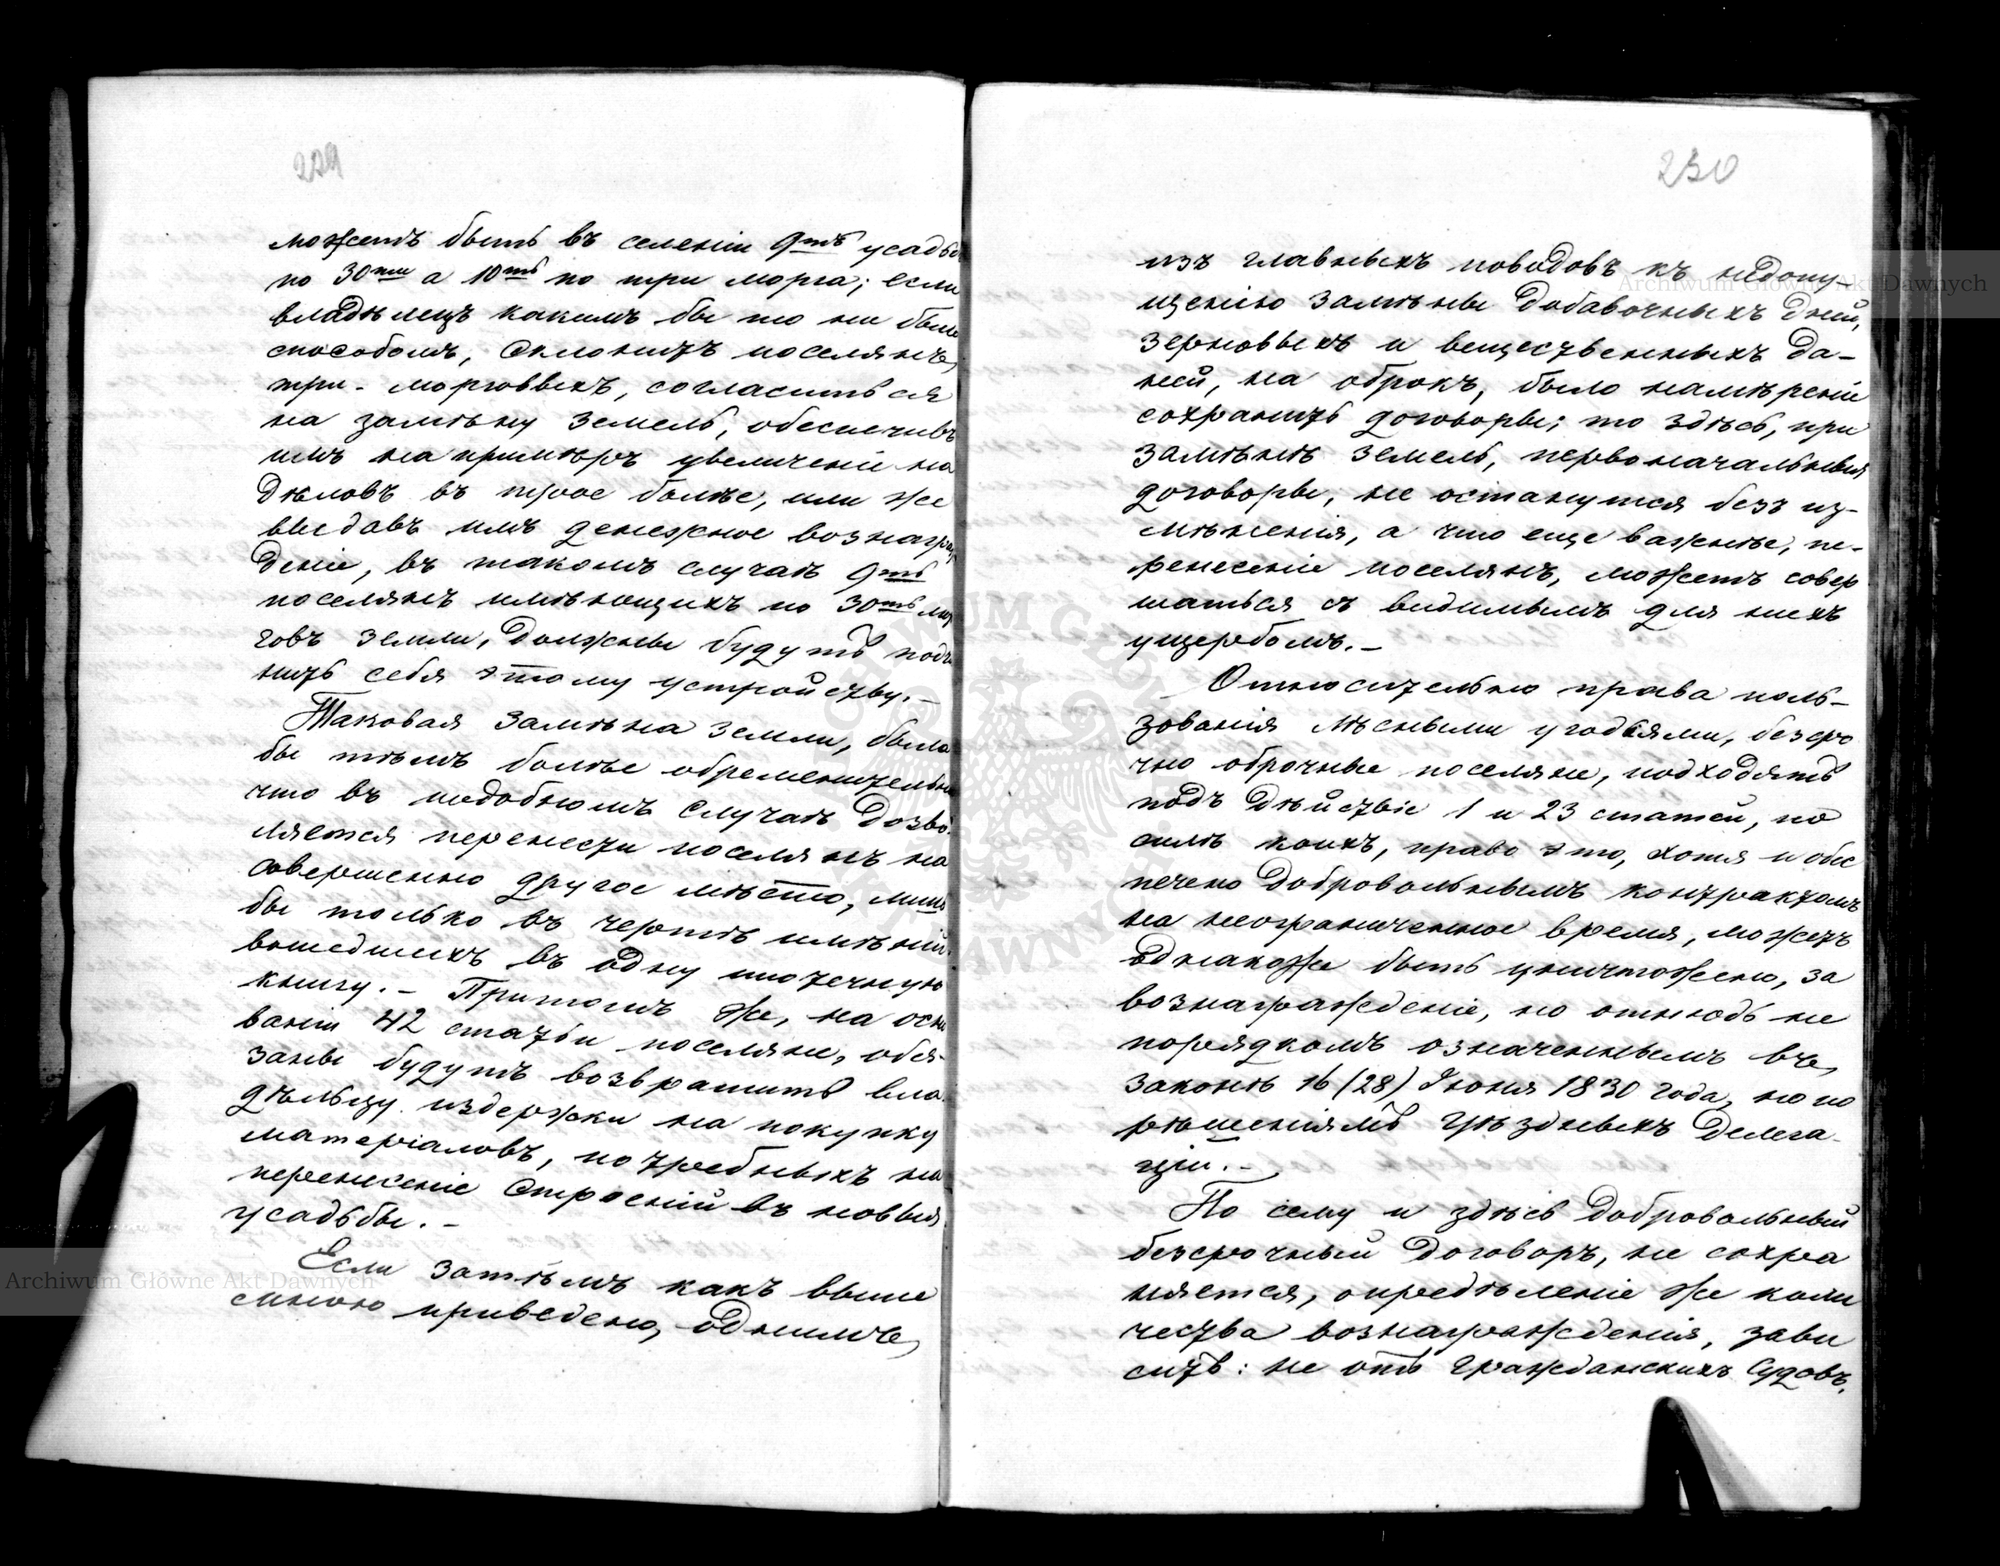 229
можетъ быть въ селеніи 9ть усадьбъ
по 30ти а 10ть по три морга; если
владѣлецъ какимъ бы то ни было
способомъ, склонитъ поселянъ,
три-морговыхъ, согласиться
на замѣну земель, обеспечивъ
имъ напримѣръ увеличеніе на
дѣловъ въ трое болѣе, или же
выдавъ имъ денежное вознаграж
деніе, въ такомъ случаѣ 9ть
поселянъ имѣющихъ по 30ть мор
говъ земли, должны будутъ подчи
нить себя этому устройству.-
Таковая замѣна земли, была
бы тѣмъ болѣе обременительна
что въ подобномъ случаѣ дозво
ляется перенести поселянъ на
совершенно другое мѣсто, лишь
бы только въ чертѣ имѣній
вошедшихъ въ одну ипотечную
книгу.- Притомъ же, на осно
ваніи 42 статьи поселяне, обя-
заны будутъ возвратить вла
дѣльцу издержки на покупку
матеріаловъ, потребныхъ на
перенесеніе строеній въ новыя
усадьбы.-
Если затѣмъ какъ выше
мною приведено, однимъ,
230
изъ главныхъ поводовъ къ недопу-
щенію замѣны добавочныхъ дней,
зерновыхъ и вещественныхъ да-
ней, на оброкъ, было намѣреніе
сохранить договоры; то здѣсь, при
замѣнѣ земель, первоначальныя
договоры, не останутся безъ из-
мѣненія, а что еще важнѣе, пе-
ренесеніе поселянъ, можетъ совер
шаться съ видимымъ для нихъ
ущербомъ.-
Относительно права поль-
зованія лѣсными угодьями, безсро
чно оброчные поселяне, подходятъ
подъ дѣйствіе 1 и 23 статей, по
силѣ коихъ, право это, хотя и обес
печено добровольнымъ контрактомъ
на неограниченное время, можетъ
однакоже быть уничтожено, за
вознагражденіе, но отнюдь не
порядкомъ означеннымъ въ,
законѣ 16 (28) Іюня 1830 года, но по
рѣшеніямъ уѣздныхъ Делега-
цій.-
По сему и здѣсь добровольный
безсрочный договоръ, не сохра
няется, опредѣленіе же коли
чества вознагражденія, зави
ситъ: не отъ Гражданскихъ Судовъ,
Archiwum Główne Akt Dawnych
Archiwum Główne Akt Dawnych